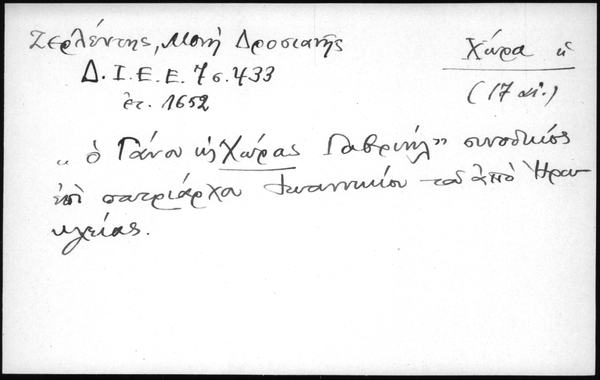 Ζερλέντης, Μονὴ Δροσιανῆς
Δ. Ι. Ε. Ε. 7 σ. 433
ἔτ. 1652
Χώρα ἡ
(17 αἰ.)
„ ὁ Γάνου κὶ Χώρας Γαβριὴλ" συνοδικῶς
ἐπὶ πατριάρχου Ἰωαννικίου τοῦ ἀπὸ Ἡρα-
κλείας.